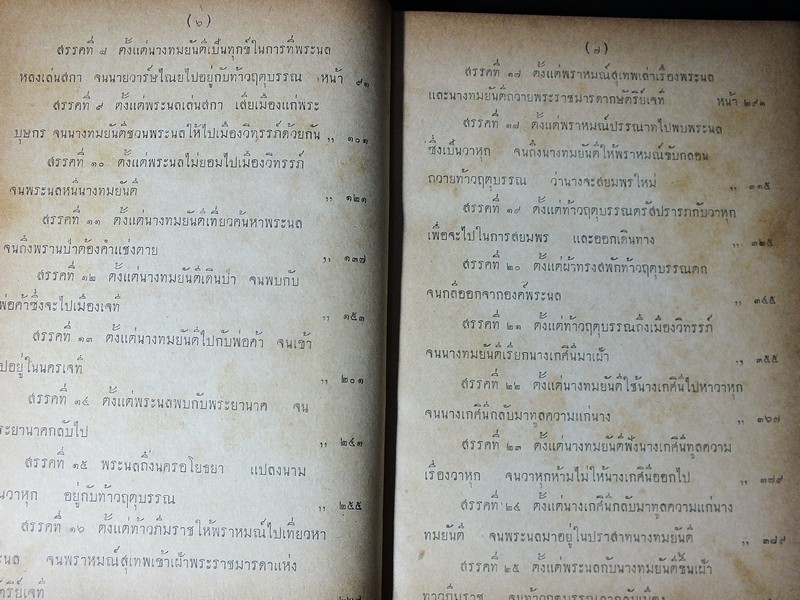 (๖)
สรรคที่ ๘ ตั้งแต่นางทมยันตีเป็นทุกข์ในการที่พระนล
หลงเล่นสกา จนนายวาร์ษไณยไปอยู่กับท้าวฤตุบรรณ หน้า ๙๑
สรรคที่ ๙ ตั้งแต่พระนลเล่นสกา เสียเมืองแก่พระ
บุษกร จนนางทมยันตีชวนพระนลให้ไปเมืองวิทรรภ์ด้วยกัน ,, ๑๐๑
สรรคที่ ๑๐ ตั้งแต่พระนลไม่ยอมไปเมืองวิทรรภ์
จนพระนลหนีนางทมยันตี ,, ๑๒๑
สรรคที่ ๑๑ ตั้งแต่นางทมยันตีเที่ยวค้นหาพระนล
จนถึงพรานป่าต้องคำแช่งตาย ,, ๑๓๗
สรรคที่ ๑๒ ตั้งแต่นางทมยันตีเดินป่า จนพบกับ
พ่อค้าซึ่งจะไปเมืองเจที ,, ๑๕๓
สรรคที่ ๑๓ ตั้งแต่นางทมยันตีไปกับพ่อค้า จนเข้า
ไปอยู่ในนครเจที ,, ๒๐๑
สรรคที่ ๑๔ ตั้งแต่พระนลพบกับพระยานาค จน
ระยานาคกลับไป ,, ๒๔๑
สรรคที่ ๑๕ พระนลถึงนครอโยธยา แปลงนาม
นวาหุก อยู่กับท้าวฤตุบรรณ ,, ๒๕๕
สรรคที่ ๑๖ ตั้งแต่ท้าวภีมราชให้พราหมณ์ไปเที่ยวหา
ะนล จนพราหมณ์สุเทพเข้าเฝ้าพระราชมารดาแห่ง
ตรีย์เจที
(๗)
สรรคที่ ๑๗ ตั้งแต่พราหมณ์สุเทพเล่าเรื่องพระนล
และนางทมยันตีถวายพระราชมารดากษัตรีย์เจที หน้า ๒๙๑
สรรคที่ ๑๘ ตั้งแต่พราหมณ์ปรรณาทไปพบพระนล
ซึ่งเป็นวาหุก จนถึงนางทมยันตีให้พราหมณ์ขับกลอน
ถวายท้าวฤตุบรรณ ว่านางจะสยมพรใหม่ ,, ๓๑๕
สรรคที่ ๑๙ ตั้งแต่ท้าวฤตุบรรณตรัสปรารภกับวาหุก
เพื่อจะไปในการสยมพร และออกเดินทาง ,, ๓๒๕
สรรคที่ ๒๐ ตั้งแต่ผ้าทรงสพักท้าวฤตุบรรณตก
จนกลีออกจากองค์พระนล ,, ๓๔๕
สรรคที่ ๒๑ ตั้งแต่ท้าวฤตุบรรณถึงเมืองวิทรรภ์
จนนางทมยันตีเรียกนางเกศินีมาเฝ้า ,, ๓๕๕
สรรคที่ ๒๒ ตั้งแต่นางทมยันตีใช้นางเกศินีไปหาวาหุก
จนนางเกศินีกลับมาทูลความแก่นาง ,, ๓๖๗
สรรคที่ ๒๓ ตั้งแต่นางทมยันตีฟังนางเกศินีทูลความ
เรื่องวาหุก จนวาหุกห้ามไม่ให้นางเกศินีออกไป ,, ๓๘๙
สรรคที่ ๒๔ ตั้งแต่นางเกศินีกลับมาทูลความแก่นาง
ทมยันตี จนพระนลมาอยู่ในปราสาทนางทมยันตี ,, ๓๘๙
สรรคที่ ๒๕ ตั้งแต่พระนลกับนางทมยันตีขึ้นเฝ้า